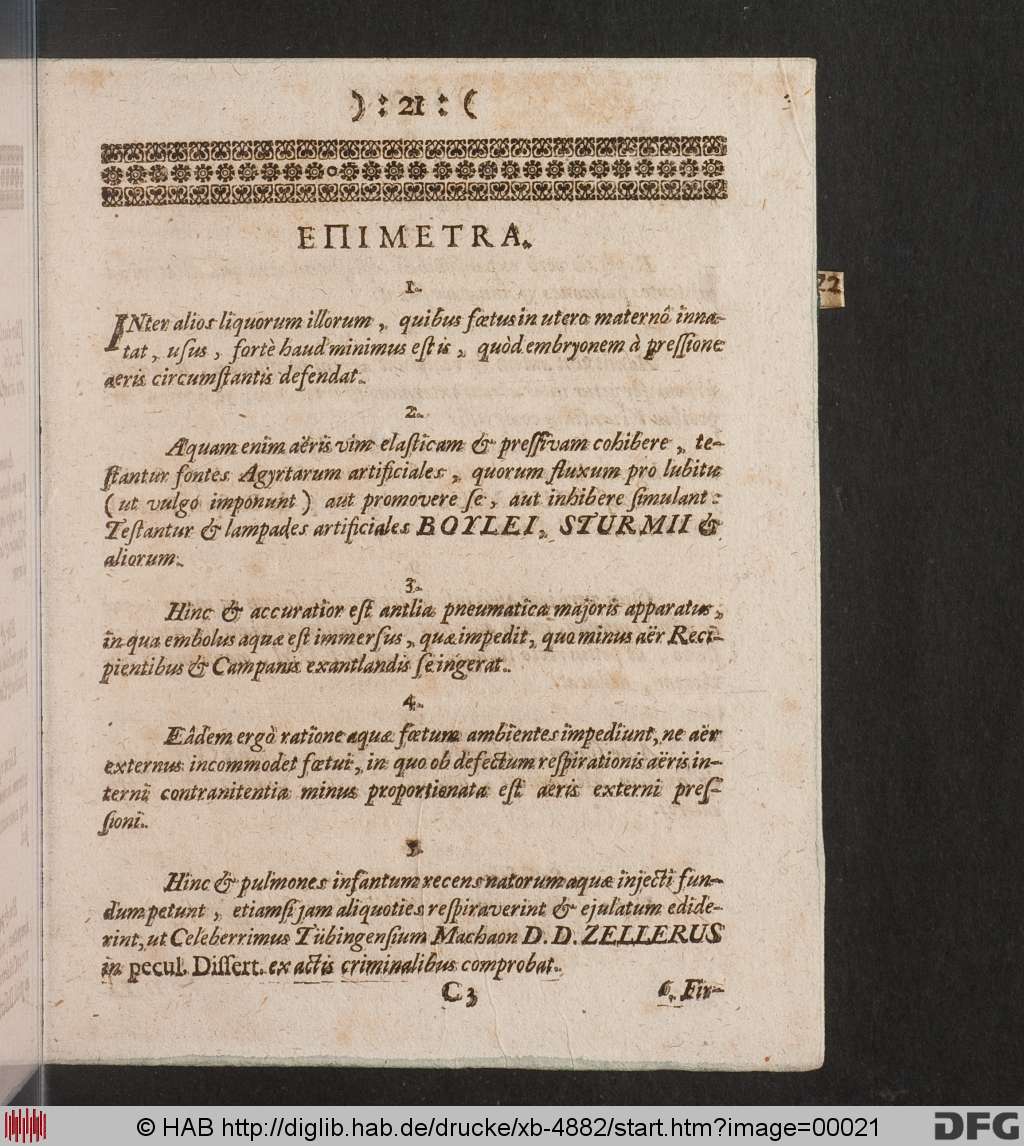 ) : 21 : (
EΠIMETRA.
1.
INter alios liquorum illorum, quibus fœtus in utero maternô inna-
tat, usus, fortè haud minimus est is, quòd embryonem à pressione
aeris circumstantis defendat.
2.
Aquam enim aëris vim elasticam & pressivam cohibere, te-
stantur fontes Agyrtarum artificiales, quorum fluxum pro lubitu
(ut vulgo imponunt) aut promovere se, aut inhibere simulant:
Testantur & lampades artificiales BOYLEI, STURMII &
aliorum.
3.
Hinc & accuratior est antlia pneumatica majoris apparatus,
in qua embolus aquæ est immersus, quæ impedit, quo minus aër Reci-
pientibus & Campanis exantlandis se ingerat.
4.
Eâdem ergò ratione aquæ fœtum ambientes impediunt, ne aër
externus incommodet fœtui, in quo ob defectum respirationis aëris in-
terni contranitentia minus proportionata est aeris externi pres-
sioni.
5.
Hinc & pulmones infantum recens natorum aquæ injecti fun-
dum petunt, etiamsi jam aliquoties respiraverint & ejulatum edide-
rint, ut Celeberrimus Tübingensium Machaon D. D. ZELLERUS
in pecul. Dissert. ex actis criminalibus comprobat.
C 3
6. Fir-
22
© HAB http://diglib.hab.de/drucke/xb-4882/start.htm?image=00021
DFG